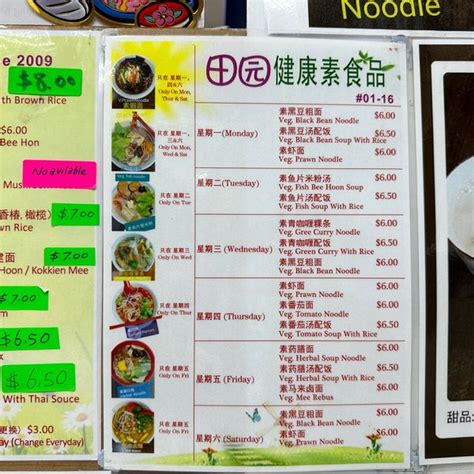 Noodle
e 2009
$8.00
th Brown Rice
$6.00
Bee Hon
No available
Mushroom
$7.00
wn Rice
$7.00
Hoon / Kokkien Mee
$7.00
$6.50
$6.50
With Thai Souce
更换) $3.00
ay (Change Everyday)
田园 健康素食品
#01-16
只在 星期一,
四&六
Only On Mon,
Thur & Sat
素虾面
只在 星期一,
三&六
Only On Mon,
Wed & Sat
只在 星期二
Only On Tue
只在 星期三
Only On Wed
只在 星期四
Only On Thur
只在 星期五
Only On Fri
只在 星期五
Only On Fri
星期一 (Monday)
素黑豆粗面 $6.00
Veg. Black Bean Noodle
素黑豆汤配饭 $6.50
Veg. Black Bean Soup With Rice
素虾面 $6.00
Veg. Prawn Noodle
星期二 (Tuesday)
素鱼片米粉汤 $6.00
Veg. Fish Bee Hoon Soup
素鱼片汤配饭 $6.50
Veg. Fish Soup With Rice
星期三 (Wednesday)
素青咖喱粿条 $6.00
Veg. Gree Curry Noodle
素青咖喱配饭 $6.50
Veg. Green Curry With Rice
素黑豆粗面 $6.00
Veg. Black Bean Noodle
星期四 (Thursday)
素虾面 $6.00
Veg. Prawn Noodle
素番茄面 $6.00
Veg. Tomato Noodle
素番茄汤配饭 $6.50
Veg. Tomato Soup With Rice
星期五 (Friday)
素药膳面 $6.00
Veg. Herbal Soup Noodle
素药膳汤配饭 $6.50
Veg. Herbal Soup With Rice
素马来卤面 $6.00
Veg. Mee Rebus
星期六 (Saturday)
素黑豆粗面 $6.00
Veg. Black Bean Noodle
素虾面 $6.00
Veg. Prawn Noodle
甜品: